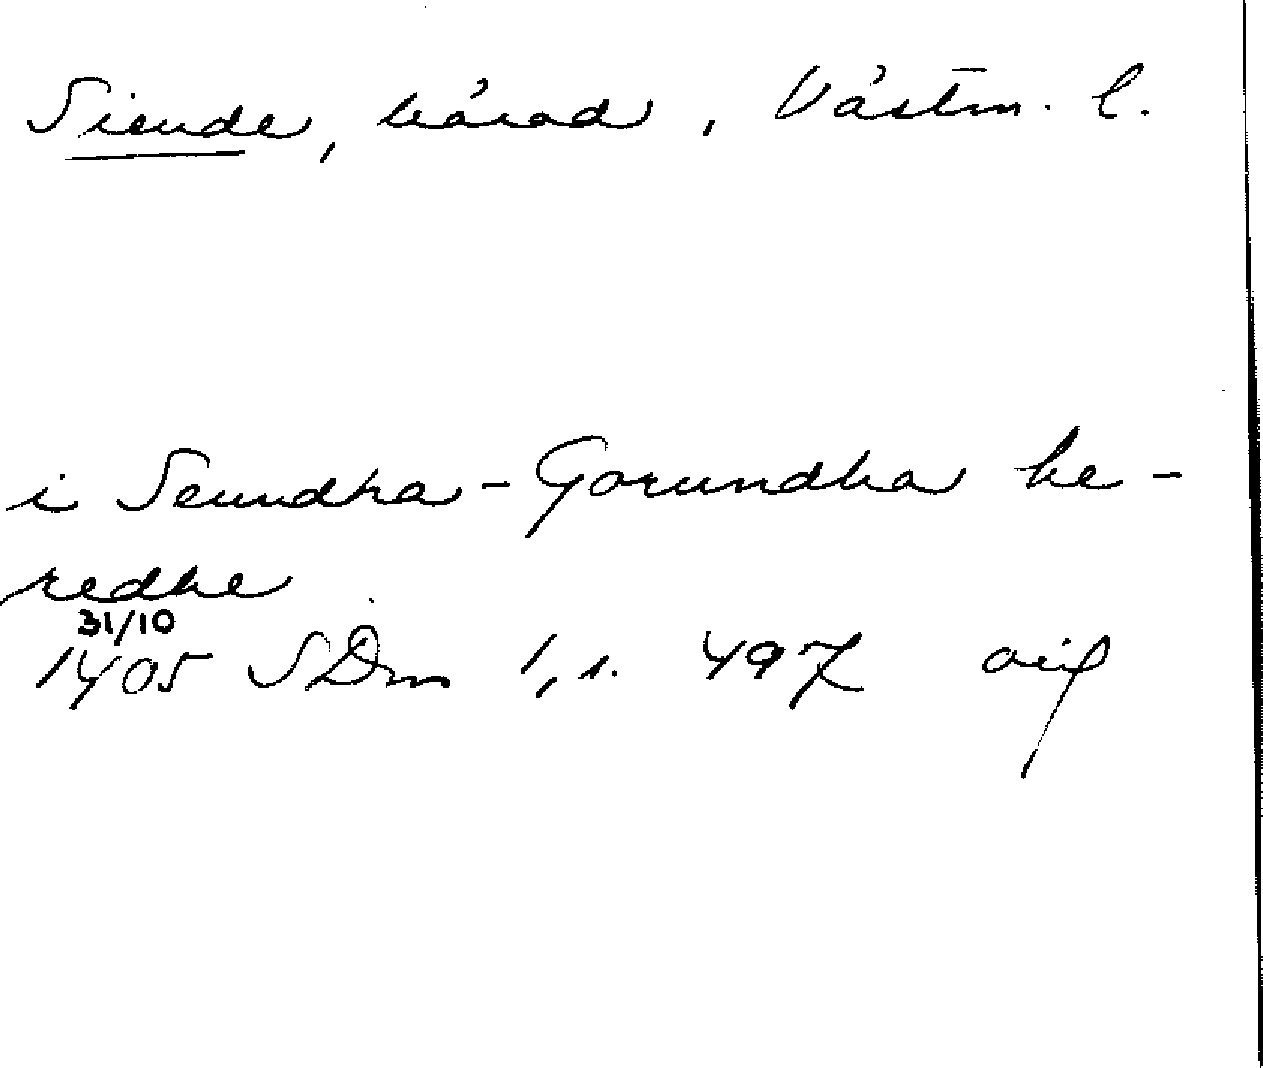 Siende, härad, Västm. l.
i Seundha-Gorundha he-
redhe
31/10
1405 SDm 1, s. 497 orig